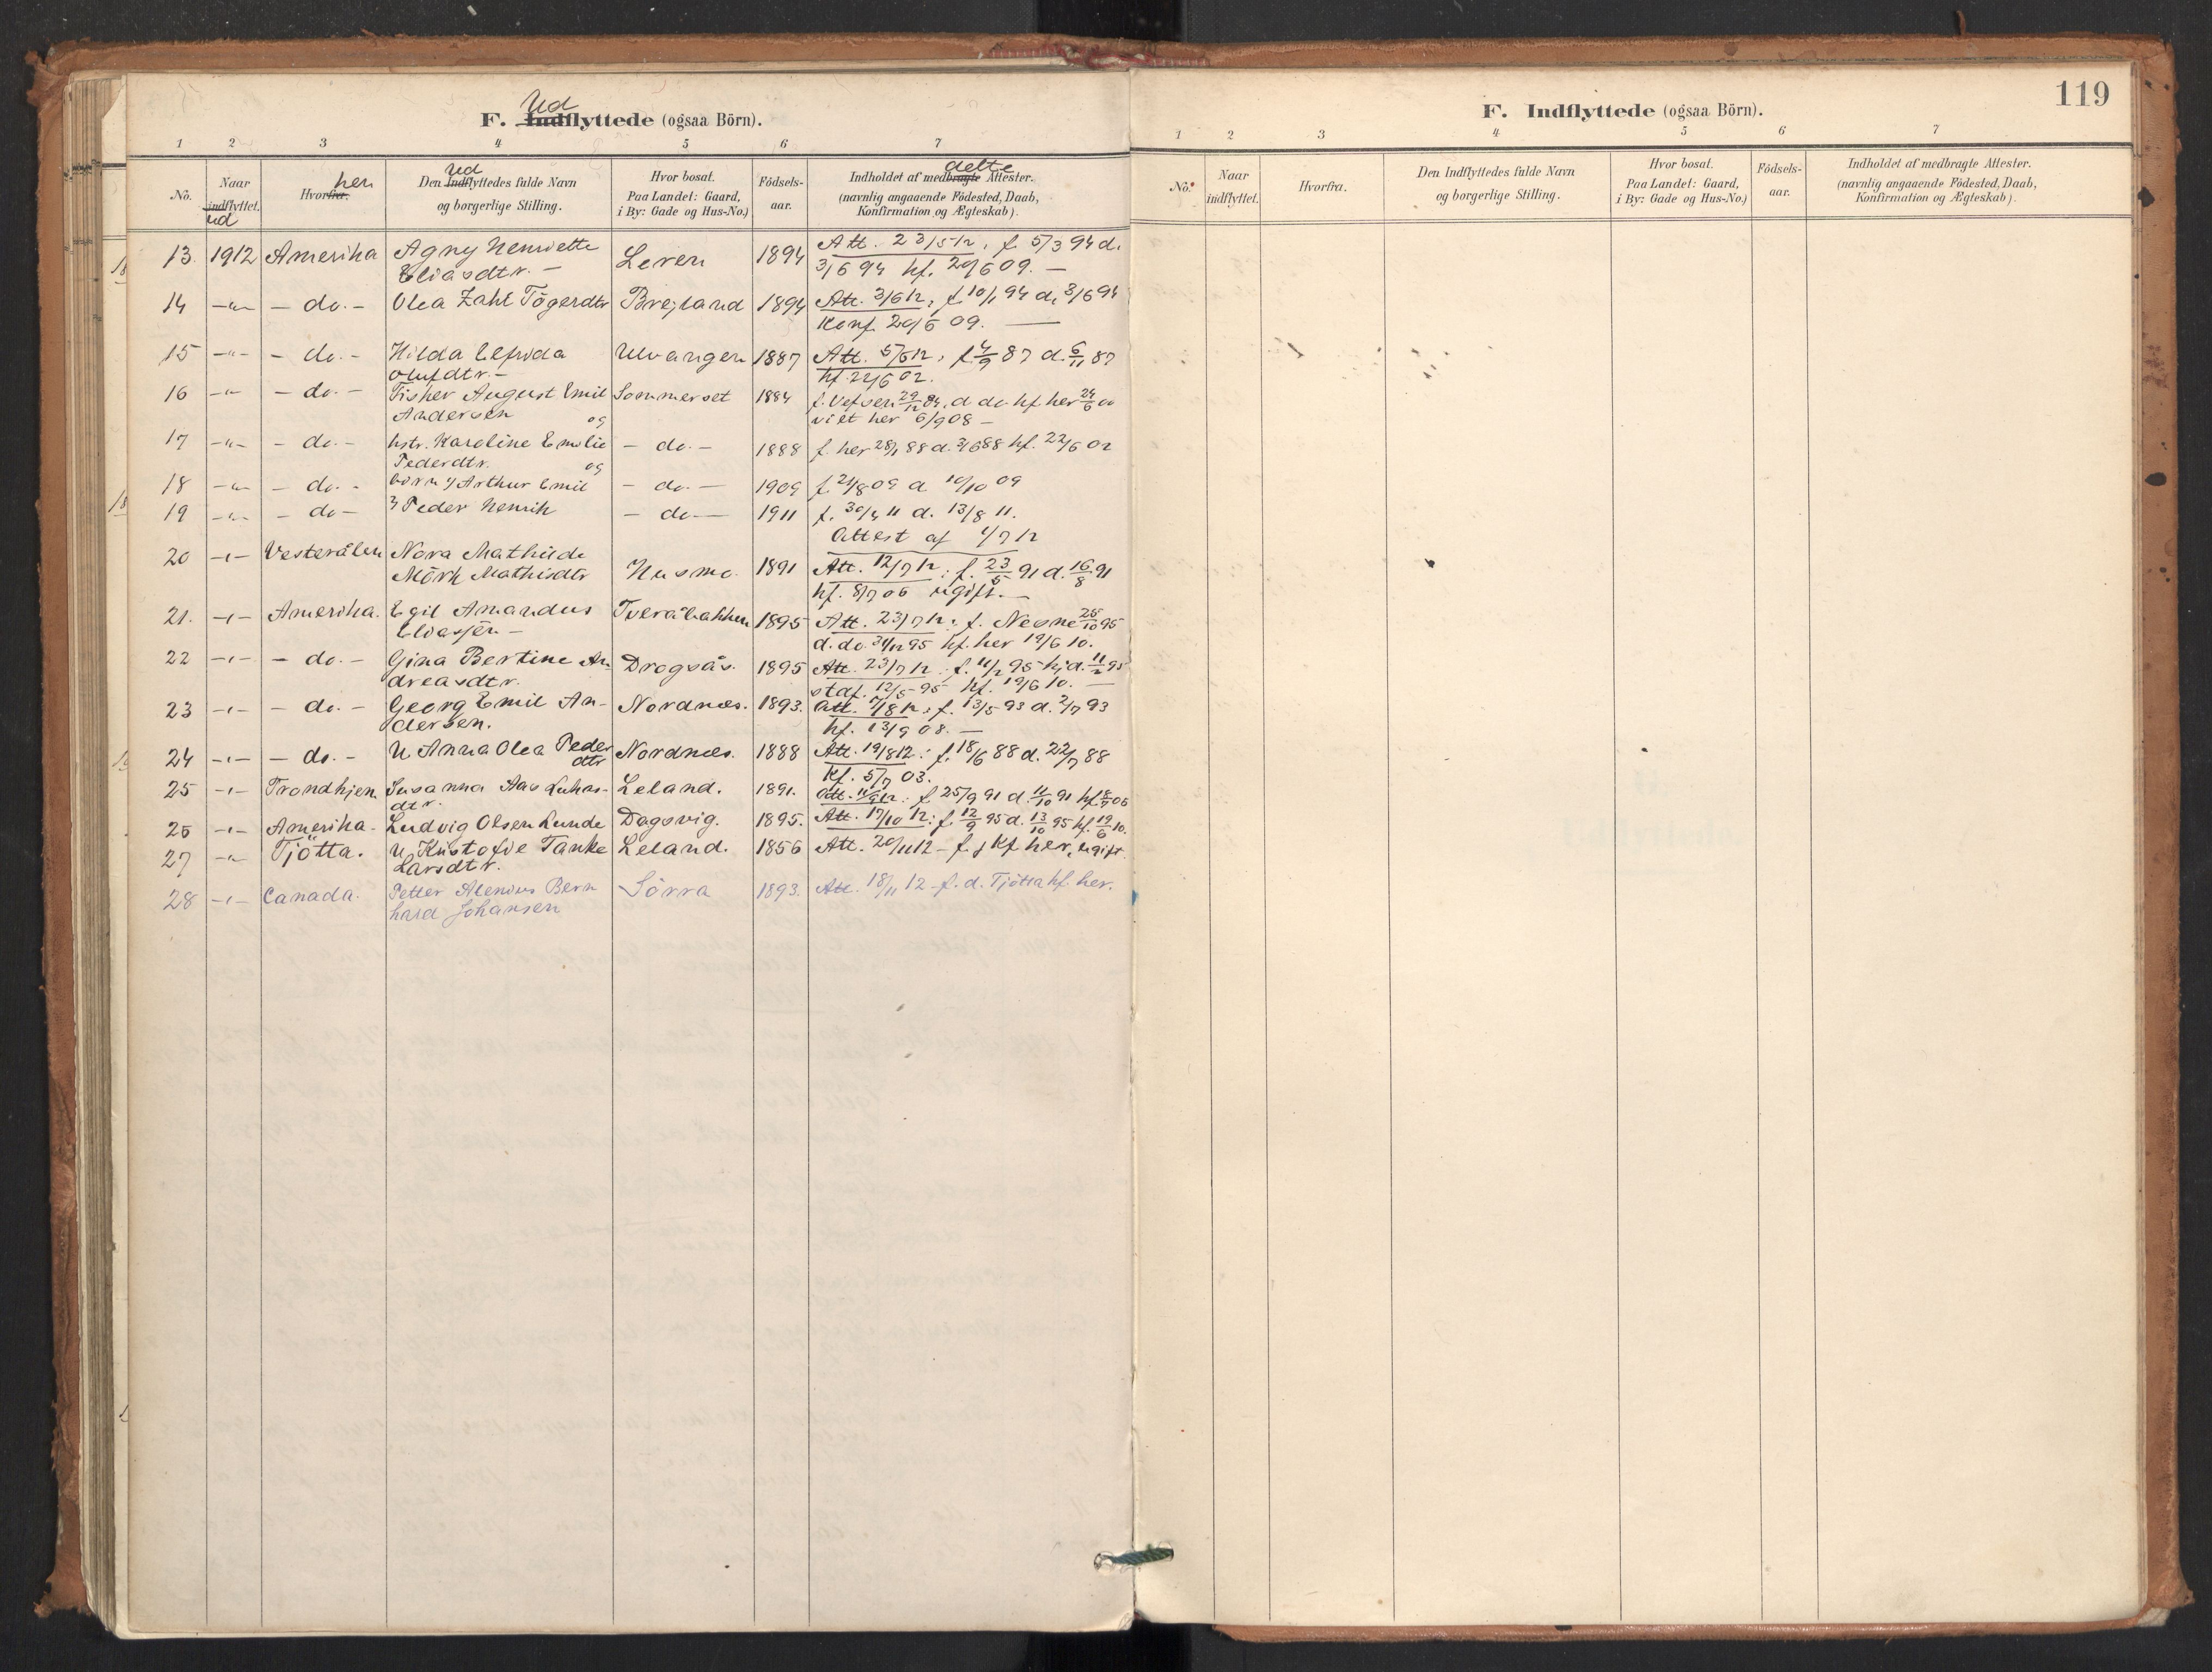 Ud
F. Indflyttede (ogsaa Börn).
1 2 3 4 5 6 7
No. Naar indflyttet. ud
Hvorfra. hen
Den Indflyttedes fulde Navn Ud
og borgerlige Stilling.
Hvor bosat.
Paa Landet: Gaard,
i By: Gade og Hus-No.)
Födsels-
aar.
Indholdet af medbragte Attester. delte
(navnlig angaaende Födested, Daab,
Konfirmation og Ægteskab).
13. 1912 Amerika Agny Henriette Leren 1894 Att. 23/5 12, f. 5/3 94 d.
Eliasdtr. — 3/6 94 kf. 20/6 09. —
14 -"- - do. - Olea Zahl Tögersdtr Breiland 1894 Att. 3/6 12, f. 10/1 94 d. 3/6 94
Konf. 20/6 09. —
15 -"- - do. - Hilda Ulvangen 1887 Att. 5/6 12, f. 4/9 87 d. 6/11 87
Olufdtr. - kf. 22/6 02.
16 -"- - do. - Fisker August Emil Sommerset 1884 f. Vefsen 29/12 84, d. do. kf. her 24/6 00
Andersen og viet her 6/9 08 —
17 -"- - do. - hstr. Karoline Emilie - do. - 1888 f. her 28/1 88 d. 3/6 88 kf. 22/6 02
Pederdtr. og
18 -"- - do. - börn Arthur Emil - do. — 1909 f. 21/8 09 d. 10/10 09
19 -"- - do - Peder Henrik - do — 1911 f. 30/4 11 d. 13/8 11.
Attest af 1/7 12
20 -"- Vesterålen Nora Mathilde
Mörk Mathisdtr Husmo. 1891 Att. 12/7 12; f. 23/5 91 d. 16/8 91
kf. 8/7 06 ugift. —
21. -"- Amerika. Egil Amandus Tveråbakken 1895 Att. 23/7 12; f. Nesne 25/10 95
Eliassen - d. do. 31/12 95 kf. her 19/6 10.
22 -"- - do. - Gina Bertine An- Drogsås. 1895 Att. 23/7 12. f. 11/2 95 hjd. 11/2 95
dreasdtr. stadf. 12/5 95 kf. 19/6 10. —
23 -"- - do. - Georg Emil An- Nordnæs. 1893. Att. 7/8 12; f. 13/5 93 d. 2/7 93
dersen. kf. 13/9 08. —
24 -"- - do. - U. Anna Olea Peder Nordnæs. 1888 Att. 19/8 12: f. 18/6 88 d. 22/7 88
dtr Kf. 5/7 03.
25 -"- Trondhjem Susanna Aas Lukas- Leland. 1891. Att. 11/9 12: f. 25/9 91 d. 11/10 91 kf. 8/7 06
dtr.
26 -"- Amerika. Ludvig Olsen Lunde Dagsvig. 1895. Att. 17/10 12: f. 12/9 95 d. 13/10 95 kf. 19/6 10.
27 -"- Tjötta. U. Kristofie Tanke Leland. 1856 Att. 20/11 12 - f. j Kf her, ugift.
Larsdtr.
28 -"- Canada. Petter Alenius Bern Sörra 1893. Att. 18/11 12 - f. d. Tjötta kf. her.
hard Johansen
119
F. Indflyttede (ogsaa Börn).
1 2 3 4 5 6 7
No.
Naar
indflyttet.
Hvorfra.
Den Indflyttedes fulde Navn
og borgerlige Stilling.
Hvor bosat.
Paa Landet: Gaard,
i By: Gade og Hus-No.)
Födsels-
aar.
Indholdet af medbragte Attester.
(navnlig angaaende Födested, Daab,
Konfirmation og Ægteskab).